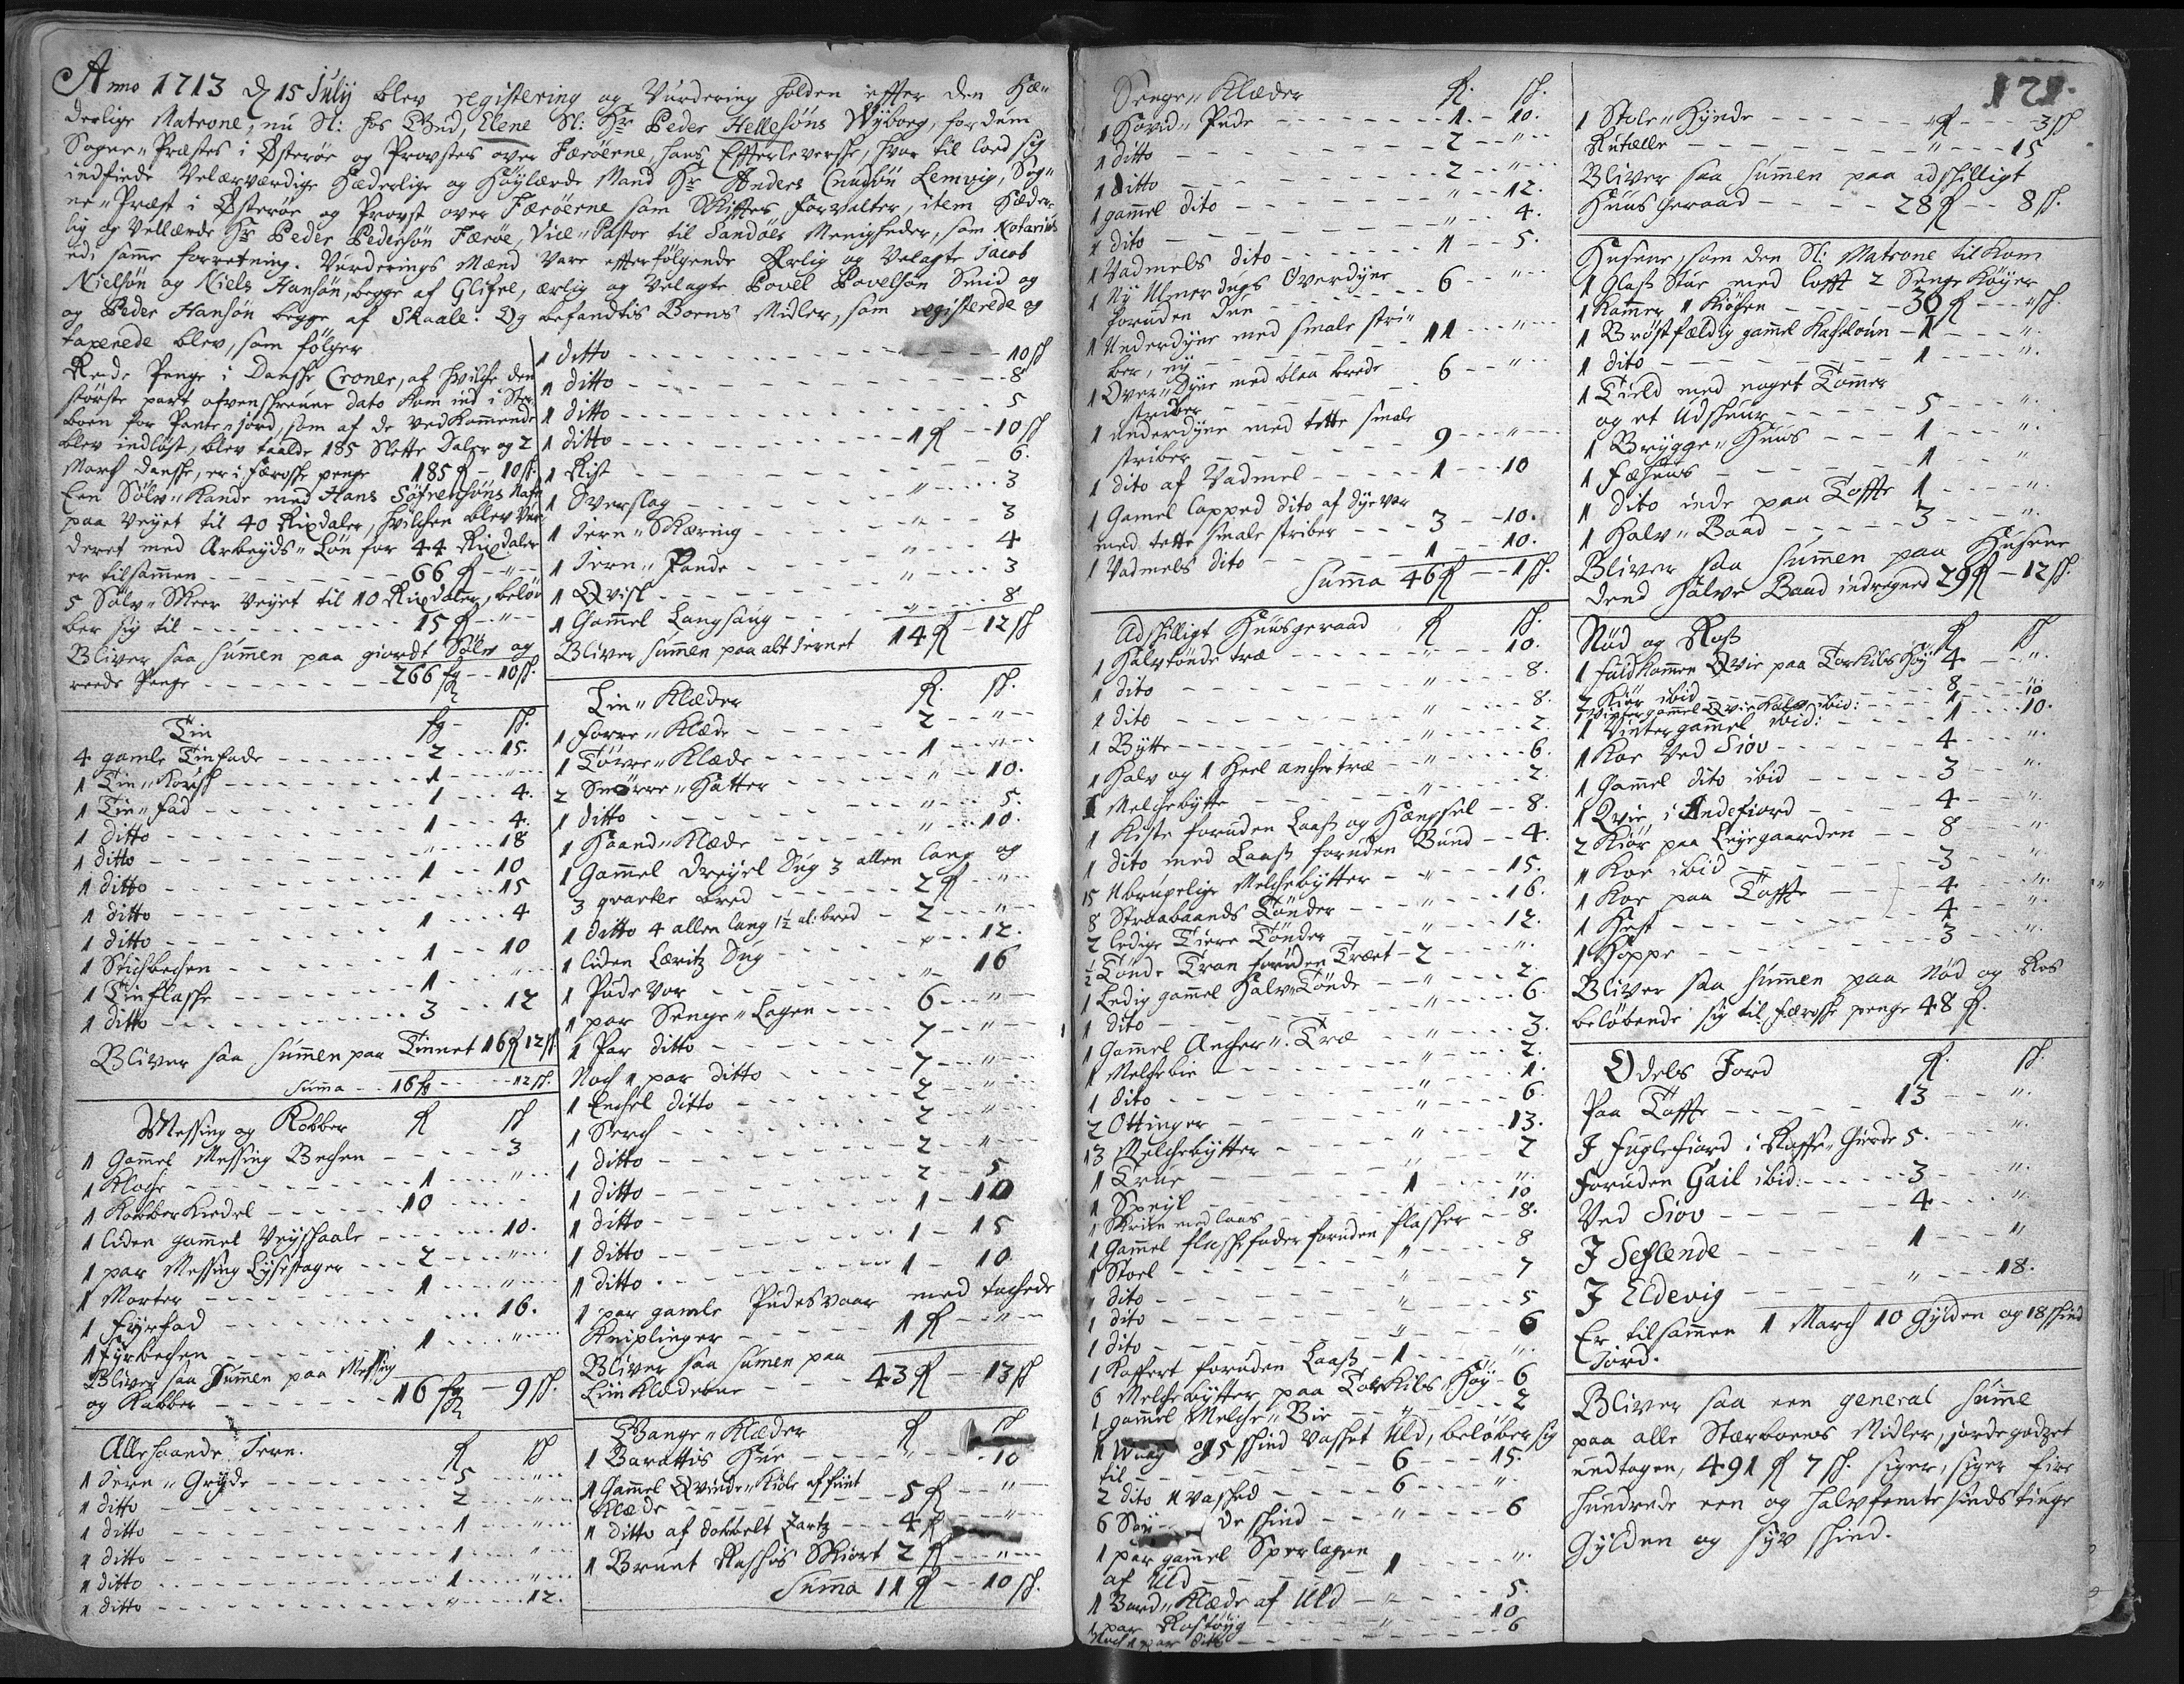 Anno 1713 d 15 July blev registering og Vurdering holden effter den Hæ-
derlige Matrone, nu Sl: hos Gud, Elene Sl: Hr Peder Hellesøns Wyborg, fordum
Sogne-Præstes i Østerøe og Provstes over Færøerne, hans Effterleverske, hvor til lod sig
indfinde Velærværdige Hæderlige og Høylærde Mand Hr Anders Cnudsøn Lemvig, Sog-
ne-Præst i Østerøe og Provst over Færøerne som Skifftes forvalter, item Hæder-
lig og Vellærde Hr Peder Pedersøn Færøe, Vice-Pastor til Sandøes Menigheder, som Notarius
ved samme forretning. Vurderings Mænd Vare effterfølgende Ærlig og Velagte Jacob
Nielsøn og Niels Hansøn, begge af Glifre, ærlig og Velagte Povel Povelsøn Smid og
og Peder Hansøn begge af Skaale. Og befandtis Boens Midler, som registerede og
taxerede blev, som følger
Rede Penge i Danske Croner, af hvilke den
største part ofvenskreune dato kom ind i Ster-
boen for Pante-jord, som af de vedkommende
blev indløst, blev taalde 185 Slette Daler og 2
March danske, er i færøske penge 185 fl - 10 sk:
Een Sølv-Kande med Hans Søfrensøns Nafn
paa Veyet til 40 Rixdaler, hvilchen blev Vur-
deret med Arbeyds-Løn for 44 Rixdaler
er tilsammen 66 fl - "
5 Sølv-Skeer Veyet til 10 Rixdaler, beløb-
ber sig til 15 fl - "
Bliver saa summen paa giordt Sølv og
reede Penge 266 fl - 10 sk.
Tin fl sk.
4 gamle Tinfade 2 15.
1 Tin-Kousk 1 "
1 Tin-fad 1 4.
1 ditto 1 4.
1 ditto " 18
1 ditto 1 10
1 ditto " 15
1 ditto 1 4
1 Stichbechen 1 10
1 Tinflaske 1 "
1 ditto 3 12
Bliver saa summen paa Tinnet 16 fl 12 sk
Summa 16 fl 12 sk.
Messing og Kobber fl sk
1 Gammel Messing Bechen 3
1 Kloche 1 "
1 Kobber Kiedel 10
1 liden gammel Veyskaale 10.
1 par Messing Lysestager 2 "
1 Morter 1 "
1 Fyrfad 16.
1 Fyrbechen 1 "
Bliver saa Summen paa Messing
og Kobber 16 fl - 9 sk.
Allehaande Jern. fl sk
1 Jern-Gryde 5 "
1 ditto 2 "
1 ditto 1 "
1 ditto 1 "
1 ditto 1 "
1 ditto " 12.
1 ditto 10 sk
1 ditto 8
1 ditto 5
1 ditto 1 fl 10 sk
1 Rist 6.
1 Sverslag " 3
1 Jern-Skæring " 3
1 Jern-Pande " 4
1 Qvisl " 3
1 Gammel Langsaug " 8
Bliver summen paa alt Jernet 14 fl - 12 sk
Lin-Klæder fl. sk.
1 Forre-Klæde 2 "
1 Tørre-Klæde 1 "
2 Snørre-Hatter " 10.
1 ditto " 5.
1 Haand-Klæde " 10.
1 Gammel Dreyel Dug 3 allen lang og
3 qvarter bred 2 fl "
1 ditto 4 allen lang 1½ al: bred 2 "
1 liden Læritz Dug " 12.
1 Pude Vor " 16
1 par Senge-Lagen 6 "
1 Par ditto 7 "
Noch 1 par ditto 7 "
1 Enchel ditto 2 "
1 Serch 2 "
1 ditto 2 "
1 ditto 2 5
1 ditto 1 10
1 ditto 1 15
1 ditto 1 10
1 par gamle Pudesvaar med tachede
Kniplinger 1 fl "
Bliver saa summen paa
Linklæderne 43 fl - 13 sk
Gange-Klæder fl sk
1 Barattis Hue " 10
1 Gammel Qvinde-Kiole af fiint
Klæde 5 fl "
1 ditto af dobbelt Zartz 4 fl "
1 Bruut Raskes Skiørt 2 fl "
Summa 11 fl - 10 sk.
Senge-Klæder fl. sk.
1 Hoved-Pude 1 10.
1 ditto 2 "
1 ditto 2 "
1 gammel dito " 12.
1 dito " 4.
1 Vadmels dito 1 5.
1 Ny Ulmerdugs Overdyne
foruden den 6 "
1 Underdyne med smale stri-
ber, ny 11 "
1 Over-Dyne med blaa brede
striber 6 "
1 underdyne med tette smale
striber 9 "
1 dito af Vadmel 1 10
1 Gamel lapped dito af Dyevor
med tette smale striber 3 10.
1 Vadmels dito 1 10.
Summa 46 fl - 1 sk.
Adskilligt Huusgeraad fl sk.
1 Halvtønde træ " 10.
1 dito " 8.
1 dito " 8.
1 Bytte " 2
1 Halv og 1 Heel ancher træ " 6.
1 Melchebytte " 2.
1 Kiste foruden Laass og Hængsel 8.
1 dito med Laass foruden Bund 4.
15 Ubrugelige Melchebytter " 15.
8 Straabaands Tønder " 16.
2 ledige Tiere Tønder " 12.
½ Tønde Tran foruden Træet 2 "
1 Ledig gammel Halv-Tønde " 2.
1 dito " 6.
1 Gammel Ancher-Træ " 3.
1 Melchebie " 2.
1 dito " 1.
2 Ottinger " 6
13 Melchebytter " 13.
1 True " 2
1 Speyl 1 "
1 Skriin med laas 10
1 Gammel flaskefoder foruden flasker 8.
1 Stoel " 8
1 dito " 7
1 dito " 5
1 dito " 6
1 Koffert foruden Laass 1 "
6 Melchebytter paa Torkils-Høy 6
1 gammel Melche-Bie " 2
1 Waag og 15 skind vasket Uld, beløber sig
til 6 15.
2 dito uvasked 6 "
6 de skind " 6
1 par gammel Sperlagen
af Uld 1 "
1 Bord-Klæde af Uld " 5.
1 par Rostøyg " 10
Noch 1 par dito 6
121.
1 Stole-Hynde " fl 3 sk
Rutælle " 15
Bliver saa summen paa adskilligt
Huus Geraad 28 fl 8 sk.
Husene, som den Sl: Matrone tilkom
1 Glass Stue med lofft 2 Senge Køyer
1 Kammer 1 Kiøken 30 fl " sk.
1 Brøstfældig gammel Kacheloun 1 "
1 dito 1 "
1 Tield med noget Tømmer
og et Udskuur 5 "
1 Brygge-Huus 1 "
1 Fæhuus 1 "
1 dito inde paa Toffte 1 "
1 Halv-Baad 3 "
Bliver saa summen paa Husene
dend halve Baad indregned 29 fl - 12 sk.
Nød og Ross fl sk
1 fuldkommen Qvie paa Torkils Høy 4 "
2 Kiør ibid 8 "
1 Vintergammel Qvie Kalv ibid: 1 10
1 Vintergammel ibid: 1 10.
1 Koe Ved Siov 4 "
1 Gammel dito ibid 3 "
1 Qvie i Andefiord 4 "
2 Kiør paa Leyegaarden 8 "
1 Koe ibid 3 "
1 Koe paa Toffte 4 "
1 Hest 4 "
1 Hoppe 3 "
Bliver saa summen paa Nød og Ros
beløbende sig til færøske penge 48 fl.
Odels Jord fl. sk.
Paa Toffte 13 "
I Fuglefiord i Kaffe-Giærde 5. "
foruden Gail ibid: 3 "
Ved Siov 4 "
I Seflende 1 "
I Eldevig " 18.
Er tilsammen 1 March 10 Gylden og 18 skind
Jord.
Bliver saa een general summe
paa alle Stærboens Midler, jordegodzet
undtagen, 491 fl 7 sk. siger, siger fire
hundrede een og halvfemtesindstiuge
Gylden og syv skind.